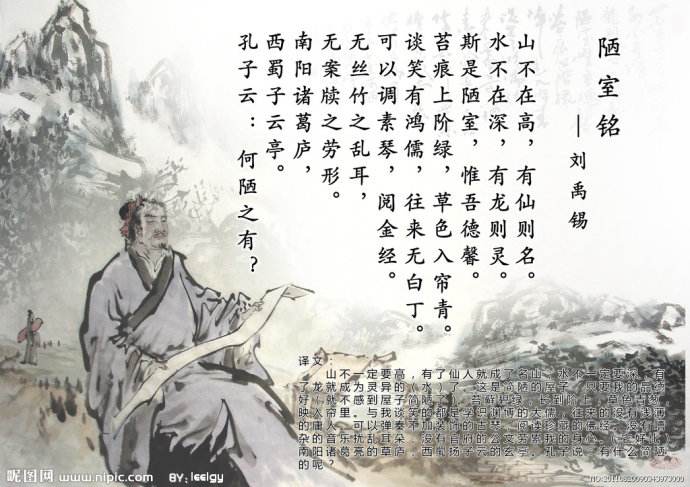 陋室铭
—刘禹锡
山不在高，有仙则名。
水不在深，有龙则灵。
斯是陋室，惟吾德馨。
苔痕上阶绿，草色入帘青。
谈笑有鸿儒，往来无白丁。
可以调素琴，阅金经。
无丝竹之乱耳，
无案牍之劳形。
南阳诸葛庐，
西蜀子云亭。
孔子云：何陋之有？
译文：
山不一定要高，有了仙人就成了名山；水不一定要深，有
了龙就成为灵异的（水）了。这是简陋的屋子，只要我的品德
好（就不感到屋子简陋了）。苔藓碧绿，长到阶上，草色青葱，
映入帘里。与我谈笑的都是学识渊博的大儒，往来的没有浅薄
的唐人，可以弹奏不加装饰的古琴，阅读珍藏的佛经。没有嘈
杂的音乐扰乱耳朵，没有官府的公文劳累我的身心。（它好比）
南阳诸葛亮的草庐，西蜀扬子云的玄亭。孔子说：有什么简陋
的呢？
昵图网 www.nipic.com
BY: leelgy
NO:20110820090343973000